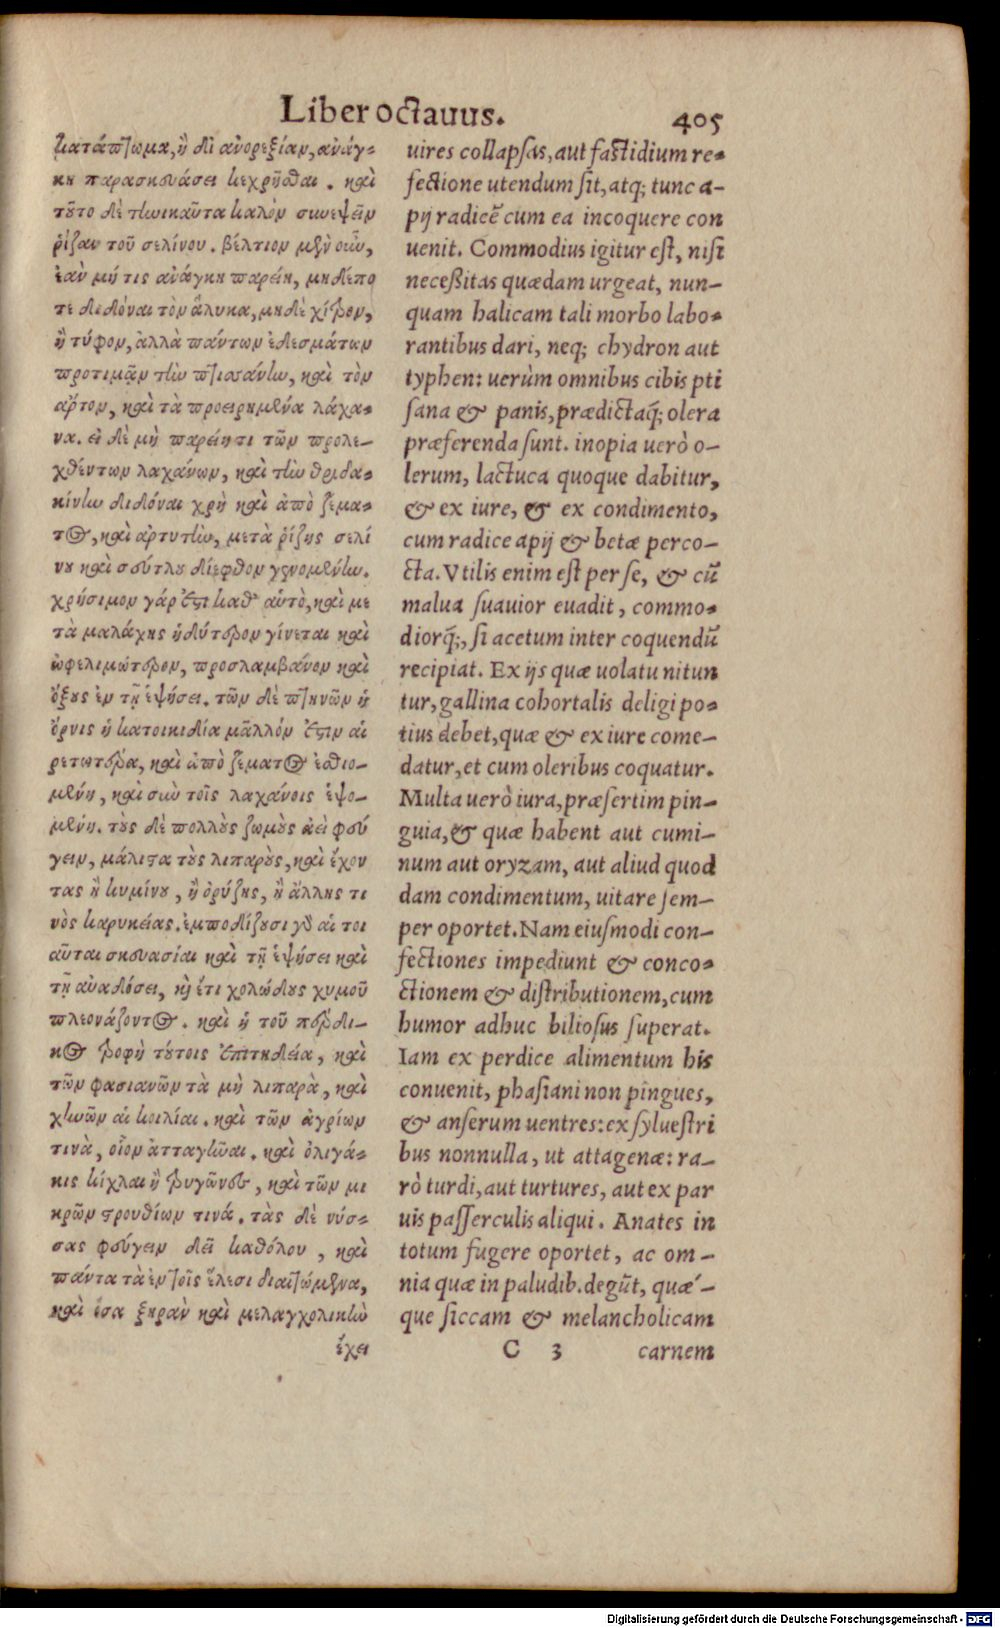 Liber octauus. 405
κατάπτωμα, ἢ δι' ἀνορεξίαν, ἀνάγ-
κη παρασκευάσει κεχρῆσθαι. καὶ
τοῦτο δὲ τηνικαῦτα καλὸν συνεψεῖν
ῥίζαν τοῦ σελίνου. βέλτιον μὲν οὖν,
ἐὰν μή τις ἀνάγκη παρείη, μηδέπο
τε διδόναι τὸν ἄλυκα, μηδὲ χίδρον,
ἢ τύφον, ἀλλὰ πάντων ἐδεσμάτων
προτιμᾷν τὴν πτισάνην, καὶ τὸν
ἄρτον, καὶ τὰ προειρημένα λάχα-
να. εἰ δὲ μὴ παρείη τι τῶν προλε-
χθέντων λαχάνων, καὶ τὴν θριδα-
κίνην διδόναι χρὴ καὶ ἀπὸ ζεμα-
τος, καὶ ἀρτυτὴν, μετὰ ῥίζης σελί
νου καὶ σεύτλου δίεφθον γενομένην.
χρήσιμον γάρ ἐστι καθ' αὑτὸ, καὶ με
τὰ μαλάχης ἡδύτερον γίνεται καὶ
ὠφελιμώτερον, προσλαμβάνον καὶ
ὄξους ἐν τῇ ἑψήσει. τῶν δὲ πτηνῶν ἡ
ὄρνις ἡ κατοικιδία μᾶλλόν ἐστιν αἱ
ρετωτέρα, καὶ ἀπὸ ζεματος ἐσθιο-
μένη, καὶ σὺν τοῖς λαχάνοις ἑψο-
μένη. τοὺς δὲ πολλοὺς ζωμοὺς ἀεὶ φεύ
γειν, μάλιστα τοὺς λιπαροὺς, καὶ ἔχον
τας ἢ κυμίνου, ἢ ὀρύζης, ἢ ἄλλης τι
νὸς καρυκείας. ἐμποδίζουσι γὰρ αἱ τοι
αῦται σκευασίαι καὶ τῇ ἑψήσει καὶ
τῇ ἀναδόσει, καὶ ἔτι χολώδους χυμοῦ
πλεονάζοντος. καὶ ἡ τοῦ πέρδι-
κος τροφὴ τούτοις ἐπιτηδεία, καὶ
τῶν φασιανῶν τὰ μὴ λιπαρὰ, καὶ
χηνῶν αἱ κοιλίαι. καὶ τῶν ἀγρίων
τινὰ, οἷον ἀτταγῆναι. καὶ ὀλιγά-
κις κίχλαι ἢ τρυγῶνες, καὶ τῶν μι
κρῶν στρουθίων τινά. τὰς δὲ νύσ-
σας φεύγειν δεῖ καθόλου, καὶ
πάντα τὰ ἐν τοῖς ἕλεσι διαιτώμενα,
καὶ ὅσα ξηρὰν καὶ μελαγχολικὴν
ἔχει
uires collapsas, aut fastidium re-
fectione utendum sit, atq; tunc a-
pij radicē cum ea incoquere con
uenit. Commodius igitur est, nisi
necessitas quædam urgeat, nun-
quam halicam tali morbo labo-
rantibus dari, neq; chydron aut
typhen: uerùm omnibus cibis pti
sana & panis, prædictaq́; olera
præferenda sunt. inopia uerò o-
lerum, lactuca quoque dabitur,
& ex iure, & ex condimento,
cum radice apij & betæ perco-
cta. Vtilis enim est per se, & cū
malua suauior euadit, commo-
diorq́;, si acetum inter coquendū
recipiat. Ex ijs quæ uolatu nitun
tur, gallina cohortalis deligi po-
tius debet, quæ & ex iure come-
datur, et cum oleribus coquatur.
Multa uerò iura, præsertim pin-
guia, & quæ habent aut cumi-
num aut oryzam, aut aliud quod
dam condimentum, uitare sem-
per oportet. Nam eiusmodi con-
fectiones impediunt & conco-
ctionem & distributionem, cum
humor adhuc biliosus superat.
Iam ex perdice alimentum his
conuenit, phasiani non pingues,
& anserum uentres: ex syluestri
bus nonnulla, ut attagenæ: ra-
rò turdi, aut turtures, aut ex par
uis passerculis aliqui. Anates in
totum fugere oportet, ac om-
nia quæ in paludib. degūt, quæ-
que siccam & melancholicam
C 3 carnem
Digitalisierung gefördert durch die Deutsche Forschungsgemeinschaft - DFG